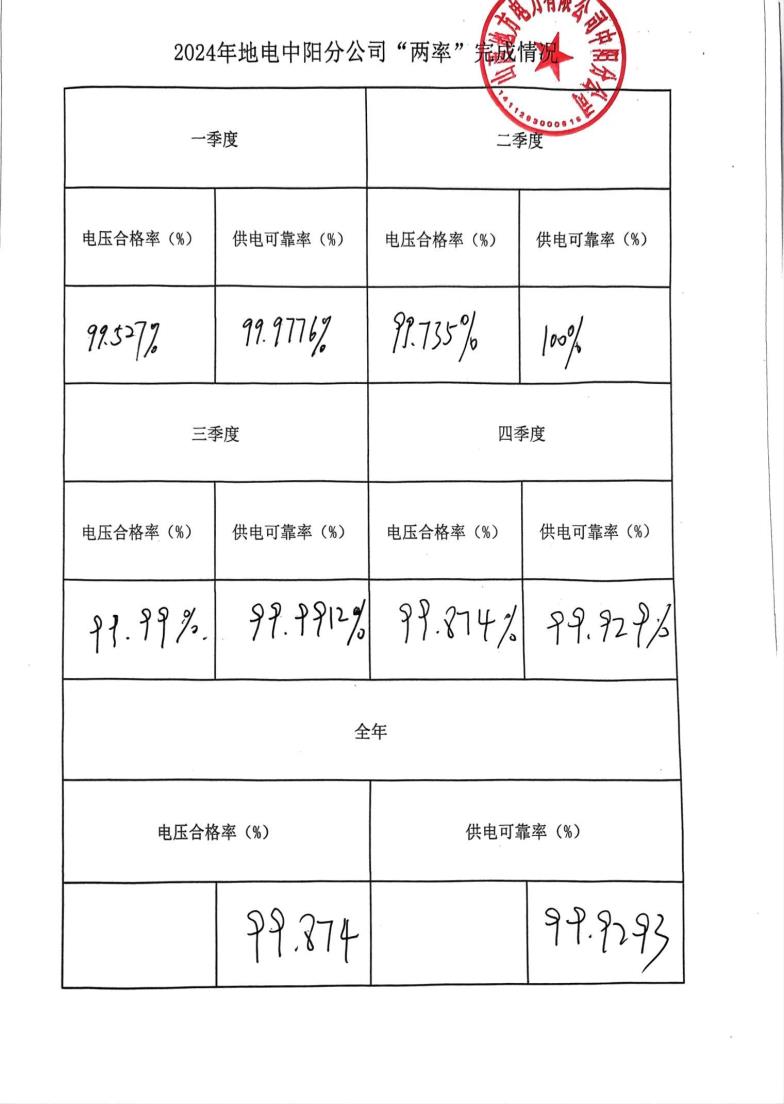 2024年地电中阳分公司“两率”完成情况
山西地方电力有限公司中阳分公司
一季度 二季度
电压合格率（%） 供电可靠率（%） 电压合格率（%） 供电可靠率（%）
99.527% 99.9776% 99.735% 100%
三季度 四季度
电压合格率（%） 供电可靠率（%） 电压合格率（%） 供电可靠率（%）
99.99%. 99.9912% 99.874% 99.929%
全年
电压合格率（%） 供电可靠率（%）
99.874 99.9293